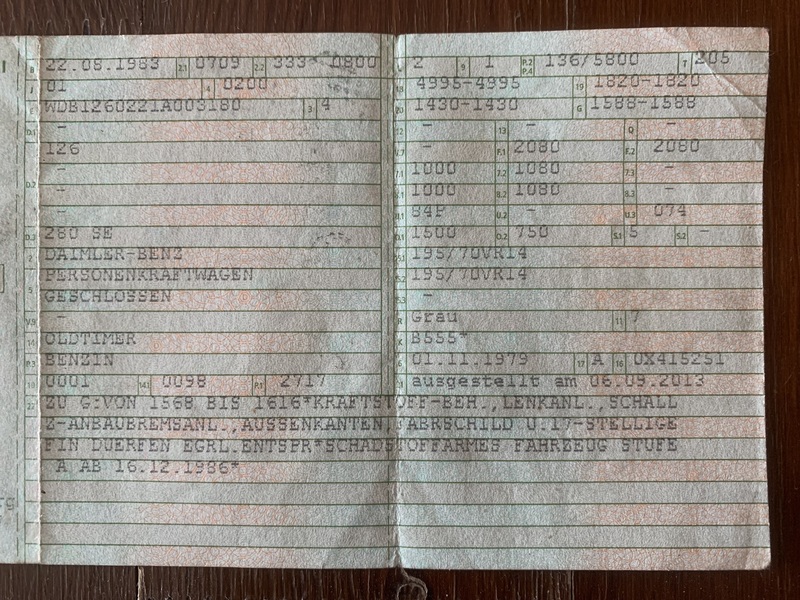 B 22.08.1983 2.1 0709 2.2 333 0800
J 01 4 0200
E WDB1260221A003180 3 4
D.1 -
126
-
D.2 -
-
D.3 280 SE
2 DAIMLER-BENZ
5 PERSONENKRAFTWAGEN
GESCHLOSSEN
V.9 -
14 OLDTIMER
P.3 BENZIN
10 0001 14.1 0098 P.1 2717
22 ZU G:VON 1568 BIS 1616*KRAFTSTOFF-BEH.,LENKANL.,SCHALL
Z-ANBAUBREMSANL.,AUSSENKANTEN,FABRSCHILD U.17-STELLIGE
FIN DUERFEN EGRL.ENTSPR*SCHADSTOFFARMES FAHRZEUG STUFE
A AB 16.12.1986*
L 2 9 1 P.2 P.4 136/5800 T 205
18 4995-4995 19 1820-1820
20 1430-1430 G 1588-1588
12 - 13 - Q -
V.7 - F.1 2080 F.2 2080
7.1 1000 7.2 1080 7.3 -
8.1 1000 8.2 1080 8.3 -
U.1 84P U.2 - U.3 074
O.1 1500 O.2 750 S.1 5 S.2 -
15.1 195/70VR14
15.2 195/70VR14
15.3 -
R Grau 11 7
K B555*
6 01.11.1979 17 A 16 UX415251
21 ausgestellt am 06.09.2013